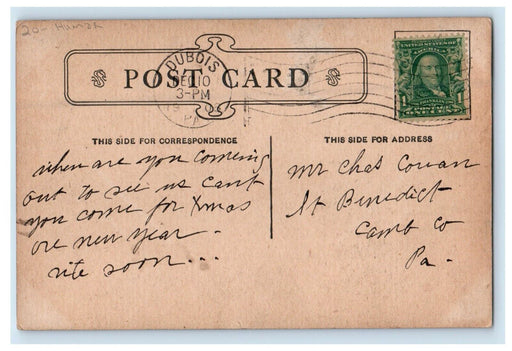 20- Human
DUBOIS
10
3-PM
PA
POST CARD
UNITED STATES OF AMERICA
1 FRANKLIN 1
POSTAGE
ONE CENT
THIS SIDE FOR CORRESPONDENCE
THIS SIDE FOR ADDRESS
when are you comeing
out to see us cant
you come for Xmas
ore new year.
rite soon...
Mr Chas Cowan
St Benedict
Camb Co
Pa.